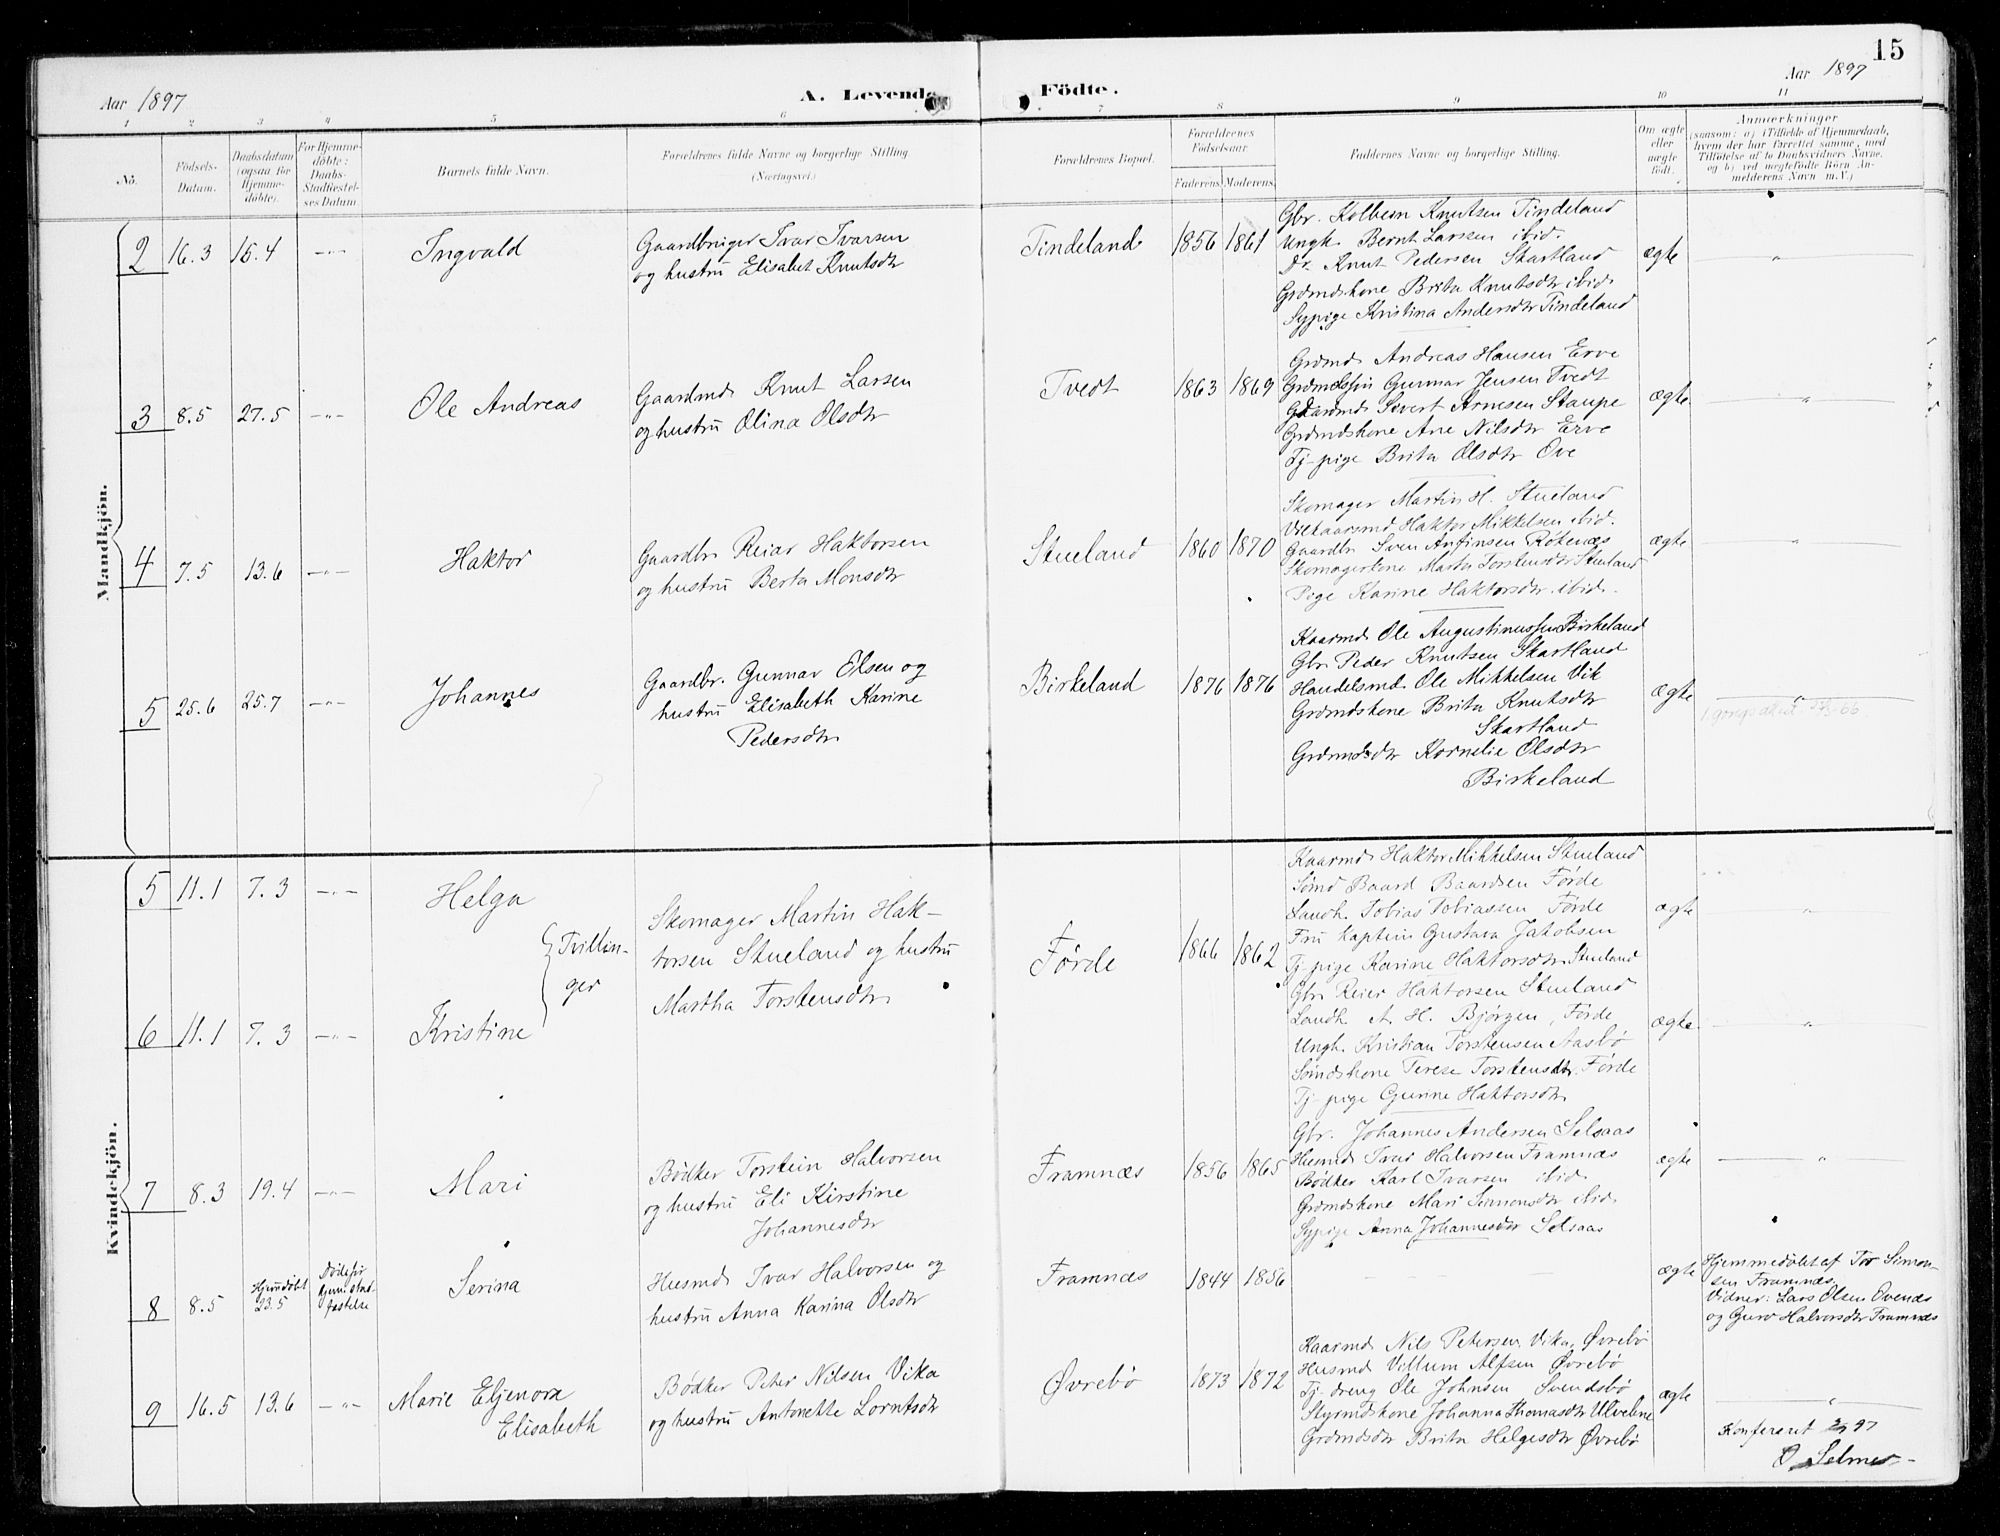 15
Aar 1897
A. Levende
Fødte.
Aar 1897
1 2 3 4 5 6 7 8 9 10 11
No.
Fødsels-
Datum.
Daabsdatum
(ogsaa for
Hjemme-
døbte).
For Hjemme-
døbte:
Daabs-
Stadfæstel-
ses Datum.
Barnets fulde Navn.
Forældrenes fulde Navne og borgerlige Stilling
(Næringsvei.)
Forældrenes Bopæl.
Forældrenes
Fødselsaar.
Faderens. Moderens.
Faddernes Navne og borgerlige Stilling.
Om ægte
eller
uægte
født.
Anmærkninger
(saasom: a) i Tilfælde af Hjemmedaab,
hvem der har forrettet samme, med
Tilføielse af to Daabsvidners Navne.
og b) ved uægtefødte Børn An-
melderens Navn m. V.)
Mandkjön.
2 16.3 15.4 —"— Ingvald
Gaardbruger Ivar Ivarsen
og hustru Elisabet Knutsdtr
Tindeland 1856 1861
Gbr. Kolbein Knutsen Tindeland
Ungk. Bernt Larsen ibid.
Dr. Knut Pedersen Skartland
Grdmdskone Brita Knutsdtr ibid.
Sypige Kristina Andersdtr Tindeland
ægte "
3 8.5 27.5 —"— Ole Andreas
Gaardmd Knut Larsen
og hustru Olina Olsdtr
Tvedt 1863 1869
Grdmd Andreas Hansen Erve
Grdmdssøn Gunnar Jensen Tvedt
Gaardmd Sivert Arnesen Staupe
Grdmdskone Ane Nilsdtr Erve
Tj-pige Brita Olsdtr Ove
ægte "
4 7.5 13.6 —"— Haktor
Gaardbr Reiar Haktorsen
og hustru Berta Monsdtr
Stueland 1860 1870
Skomager Martin H. Stueland
Vilkaarsmd Haktor Mikkelsen ibid.
Gaardbr Sven Anfinsen Rotenæs
Skomagerkone Marta Torstensdtr Stueland
Pige Karine Haktorsdtr ibid.
ægte "
5 25.6 25.7 —"— Johannes
Gaardbr. Gunnar Olsen og
hustru Elisabeth Karine
Pedersdtr
Birkeland 1876 1876
Kaarmd Ole Augustinussen Birkeland
Gbr Peder Knutsen Skartland
Handelsmd Ole Mikkelsen Vik
Grdmdskone Brita Knutsdtr
Skartland
Grdmdsdtr Kornelie Olsdtr
Birkeland
ægte "
Kvindekjön.
5 11.1 7.3 —"— Helga
6 11.1 7.3 —"— Kristine
Tvillin-
ger
Skomager Martin Hak-
torsen Stueland og hustru
Martha Torstensdtr
Førde 1866 1862
Kaarmd Haktor Mikkelsen Stueland
Sømd Baard Baardsen Førde
Landh. Tobias Tobiassen Førde
Fru Kaptein Gustava Jakobsen
Tj-pige Karine Haktorsdtr Stueland
ægte "
Gbr Reier Haktorsen Stueland
Landh. A. H. Bjørgen, Førde
Ungk. Kristian Torstensen Aasbø
Sømdskone Terese Torstensdtr Førde
Tj-pige Gunne Haktorsdtr
ægte "
7 8.3 19.4 —"— Mari
Bødker Torstein Halvorsen
og hustru Eli Kirstine
Johannesdtr
Framnæs 1856 1865
Gbr. Johannes Andersen Selsaas
Husmd Ivar Halvorsen Framnæs
Bødker Karl Ivarsen ibid
Grdmdskone Mari Simonsdtr ibid
Sypige Anna Johannesdtr Selsaas
ægte "
8 8.5 Hjemdøbt
23.5
Døde før
hjem. stad-
fæstelse
Serina
Husmd Ivar Halvorsen og
hustru Anna Karina Olsdtr
Framnæs 1844 1856
ægte
Hjemmedøbt af Tor Simon-
sen Framnæs.
Vidner: Lars Olsen Ovenæs
og Guro Halvorsdtr Framnæs
9 16.5 13.6 —"— Marie Eljenora
Elisabeth
Bødker Peter Nilsen Vika
og hustru Antonette Lorntsdtr
Øvrebø 1873 1872
Kaarmd Nils Petersen Vika, Øvrebø
Husmd Villum Alfsen Øvrebø
Tj-dreng Ole Johnsen Svendsbø
Styrmdskone Johanna Thomasdtr Ulvelene
Grdmdsdtr Brita Helgesdtr Øvrebø
ægte "
Konfereret 97
O. Selmer